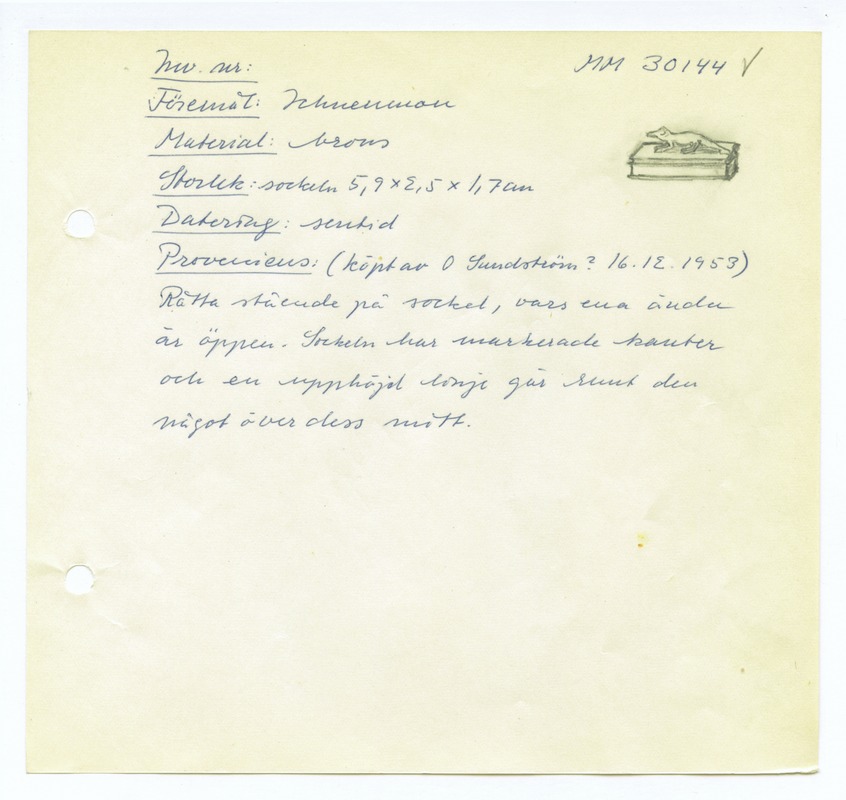 Inv. nr: MM 30144 ✓
Föremål: Ichneumon
Material: brons
Storlek: sockeln 5,9 x 2,5 x 1,7 cm
Datering: sentid
Proveniens: (köpt av O Sundström? 16.12.1953)
Råtta stående på sockel, vars ena ända
är öppen. Sockeln har markerade kanter
och en upphöjd linje går runt den
något över dess mitt.